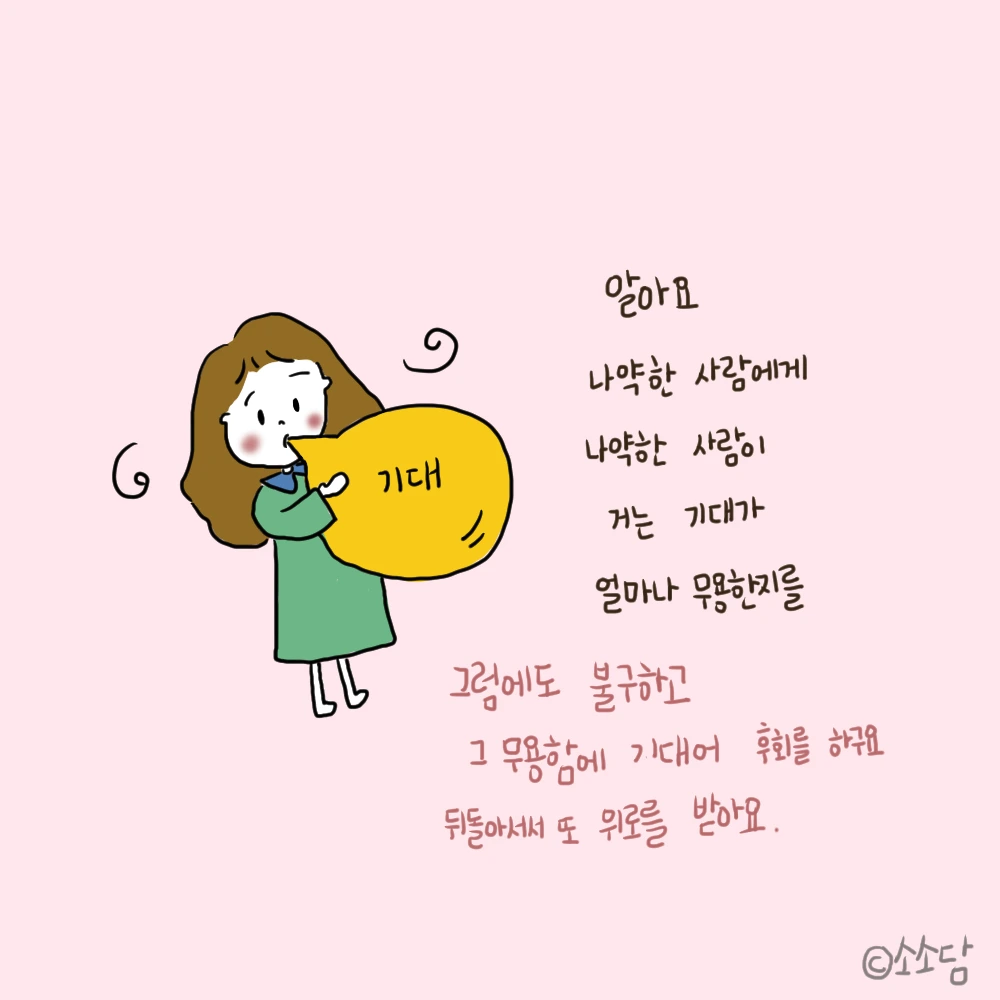 기대
알아요
나약한 사람에게
나약한 사람이
거는 기대가
얼마나 무용한지를
그럼에도 불구하고
그 무용함에 기대어 후회를 하구요
뒤돌아서서 또 위로를 받아요.
©소소담